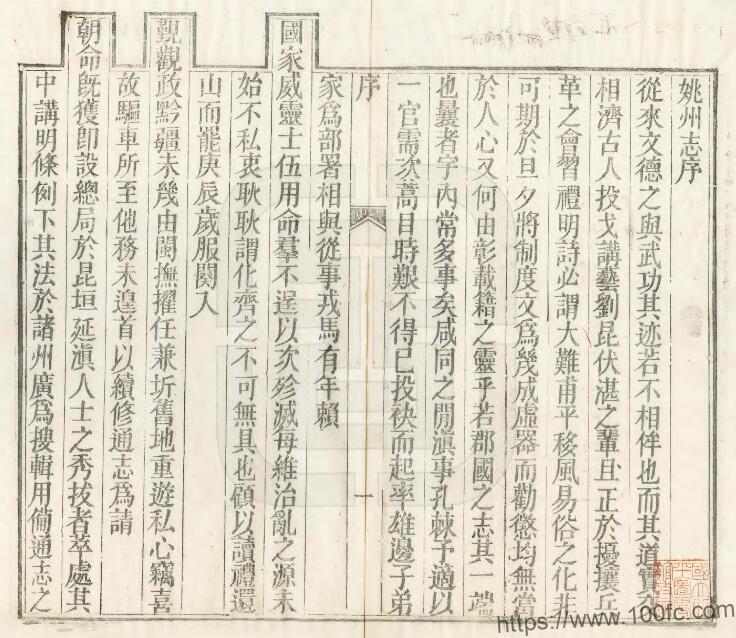 姚州志序
從來文德之與武功其迹若不相侔也而其道實
相濟古人投戈講藝劉昆伏湛之輩且正於擾攘丘
革之會習禮明詩必謂大難甫平移風易俗之化非
可期於旦夕將制度文為幾成虛器而勸懲均無當
於人心又何由彰載籍之靈乎若郡國之志其一端
也曩者宇內常多事矣咸同之間滇事孔棘予適以
一官需次蒿目時艱不得已投袂而起率雄邊子弟
序
一
家為部署相與從事戎馬有年賴
國家威靈士伍用命羣不逞以次殄滅每維治亂之源未
始不私衷耿耿謂化齊之不可無具也顧以讀禮還
山而罷庚辰歲服闋入
覲觀政黔疆未幾由閩撫擢任兼圻舊地重遊私心竊喜
故驅車所至他務未遑首以續修通志為請
朝命既獲即設總局於昆垣延滇人士之秀拔者萃處其
中講明條例下其法於諸州廣為搜輯用備通志之
https://www.100fc.com